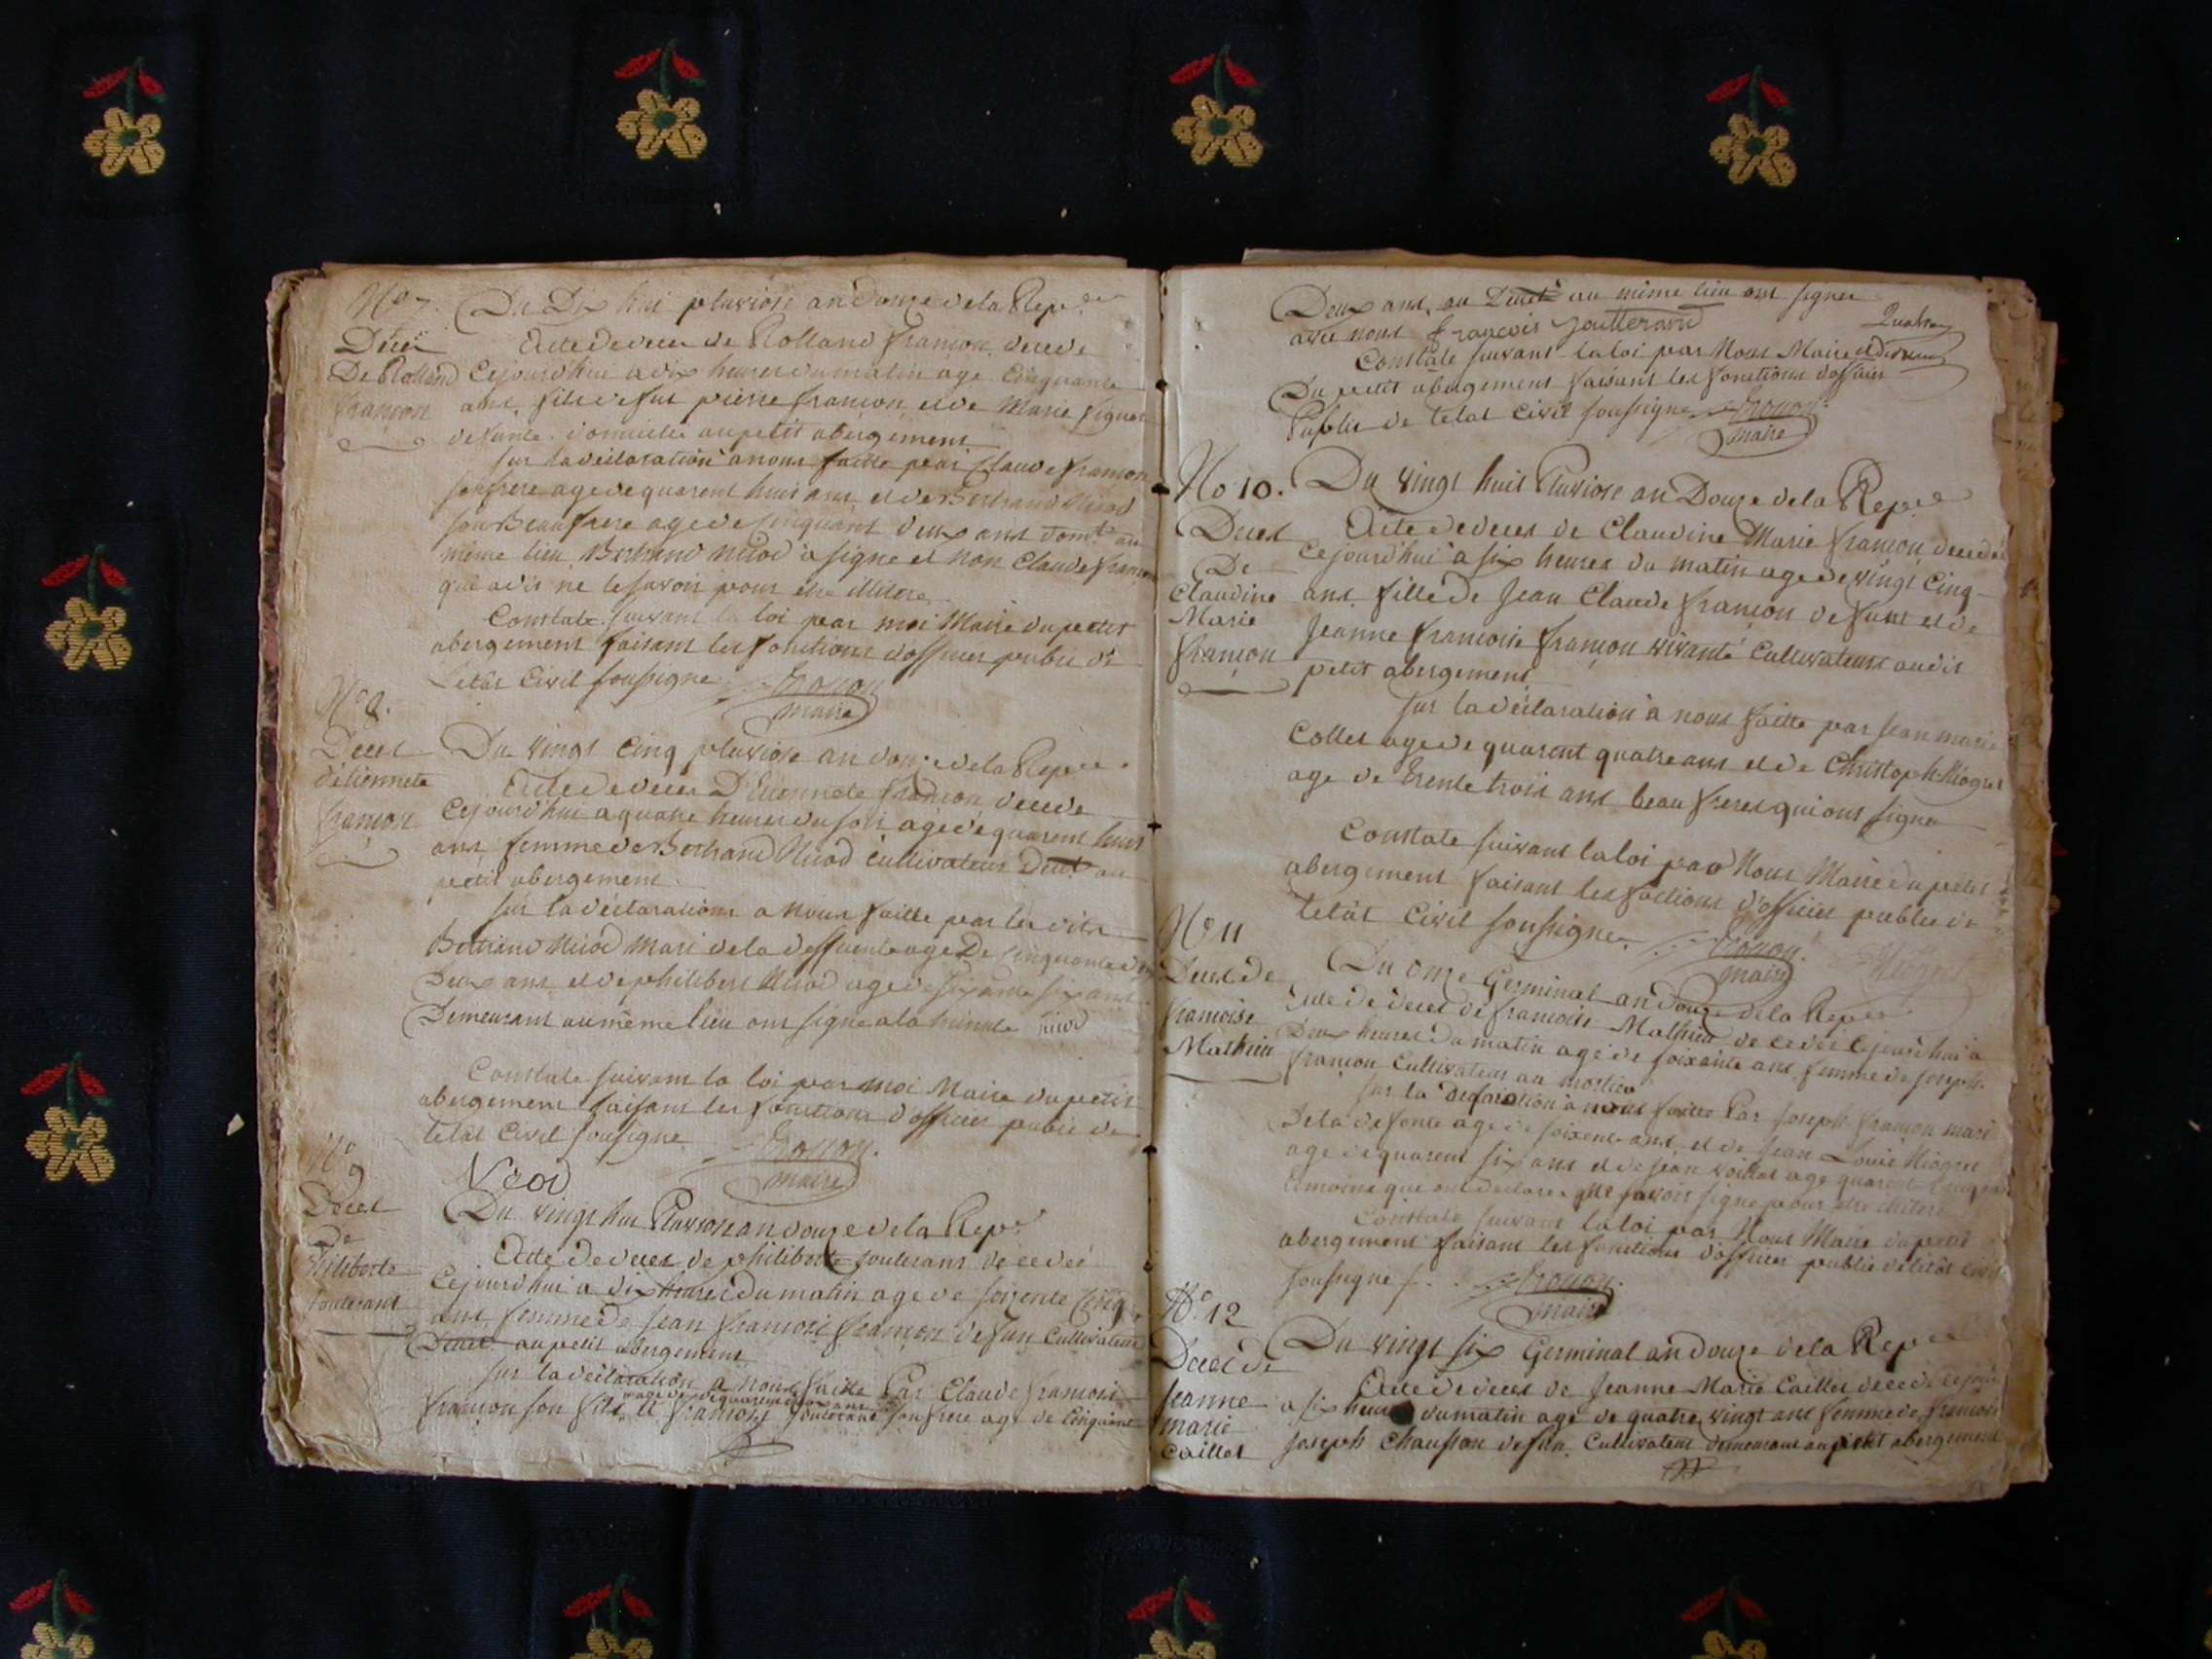 No 7.
Du Dix hui pluviose an Douze de la Repce
Déces
De Rolland
françon
Acte de deces de Rolland françon, decede
Cejourdhui a dix heures du matin age Cinquante
ans, fils de fut pierre françon, et de Marie
defunte. domicilie au petit abergement
sur la declaration a nous faitte par Claude françon
son frere age de quarent huis ans et de Bertrand Nicod
son Beaufrere age de sinquant deux ans domt au
même lieu, Bertrand nicod a signe et non Claude françon
que a dis ne le savoir pour etre illitere
Constate suivant la loi par moi Maire du petit
abergement faisant les fonctions dofficier public de
letat Civil soussigne
maire
No 8.
Deces
detiennete
françon
Du vingt Cinq pluviose an douze de la Repce
Acte de deces D'Etiennete françon, decede
Cejourdhui a quatre heures du soir age de quarent huit
ans femme de Bertrand Nicod cultivateur Dmt au
petit abergement
sur la declarations a nous faitte par les dits
Bertrand Nicod mari de la deffuente age De sinquante
Deux ans et de philibert Nicod age de sixante six ans
Demeurant au même lieu ont signe a la minute nicod
Constate suivant la loi par moi Maire du petit
abergement faisant les fonctions dofficier public de
letat Civil sousigne
maire
Nicod
No 9
Deces
De
Philiberte
Du vingt hui Pluviose an douze de la Repce
Acte de deces de philiberte gouterant decedeé
Cejourdhui a dix heures du matin age de soixente Cinq
ans femme de Jean francois françon defun Cultivateur
Dmt au petit abergement
sur la declaration a nous faitte Par Claude francois
age de quarent ans
françon son fils et francois Gouterant son frere age de Cinquant
Deux ans, au Dmt au même lieu ont signer
avec nous francois goutterand
Constate suivant la loi par Nous Maire
Du petit abergement faisant les fonctions dofficier
Public de letat Civil soussigne
maire
No 10.
Du vingt huit Pluviose an Douze de la Repce
Deces
De
Claudine
Marie
françon
Acte de deces de Claudine Marie françon, decedeé
Cejourdhui a six heures du matin age de vingt Cinq
ans, fille de Jean Claude françon defunt et de
Jeanne francoise françon vivante Cultivateurs audit
petit abergement
sur la declaration a nous faitte par Jean marie
Collet age de quarent quatre ans et de Christoph Niogret
age de trente trois ans beau freres qui ont signe
Constate suivant la loi par Nous Maire du petit
abergement faisant les foctions d'officier public de
letat Civil soussigne
maire
No 11
Deces de
francoise
Mathieu
Du onze Germinal an douze de la Repce
Acte de deces de francoise Mathieu decedeé Cejourdhui a
Deux heures du matin age de soixante ans femme de joseph
françon Cultivateur au
sur la Declaration a nous faitte Par joseph françon mari
De la defunte age de soixente ans, et de Jean Louis Niogret
age de quarent six ans et de jean age quarent
temoins que ont declarer ne savoir signe pour etre illitere
Constate suivant la loi par Nous Maire du petit
abergement faisant les fonctions dofficier public de letat Civil
soussigne
maire
No 12
Deces de
Jeanne
Marie
Caillet
Du vingt six Germinal an douze de la Repce
Acte de deces de Jeanne Marie Caillet decede
a six heures du matin age de quatre vingt ans femme de francois
Joseph Chausson defun. Cultivateur demeurant au petit abergement